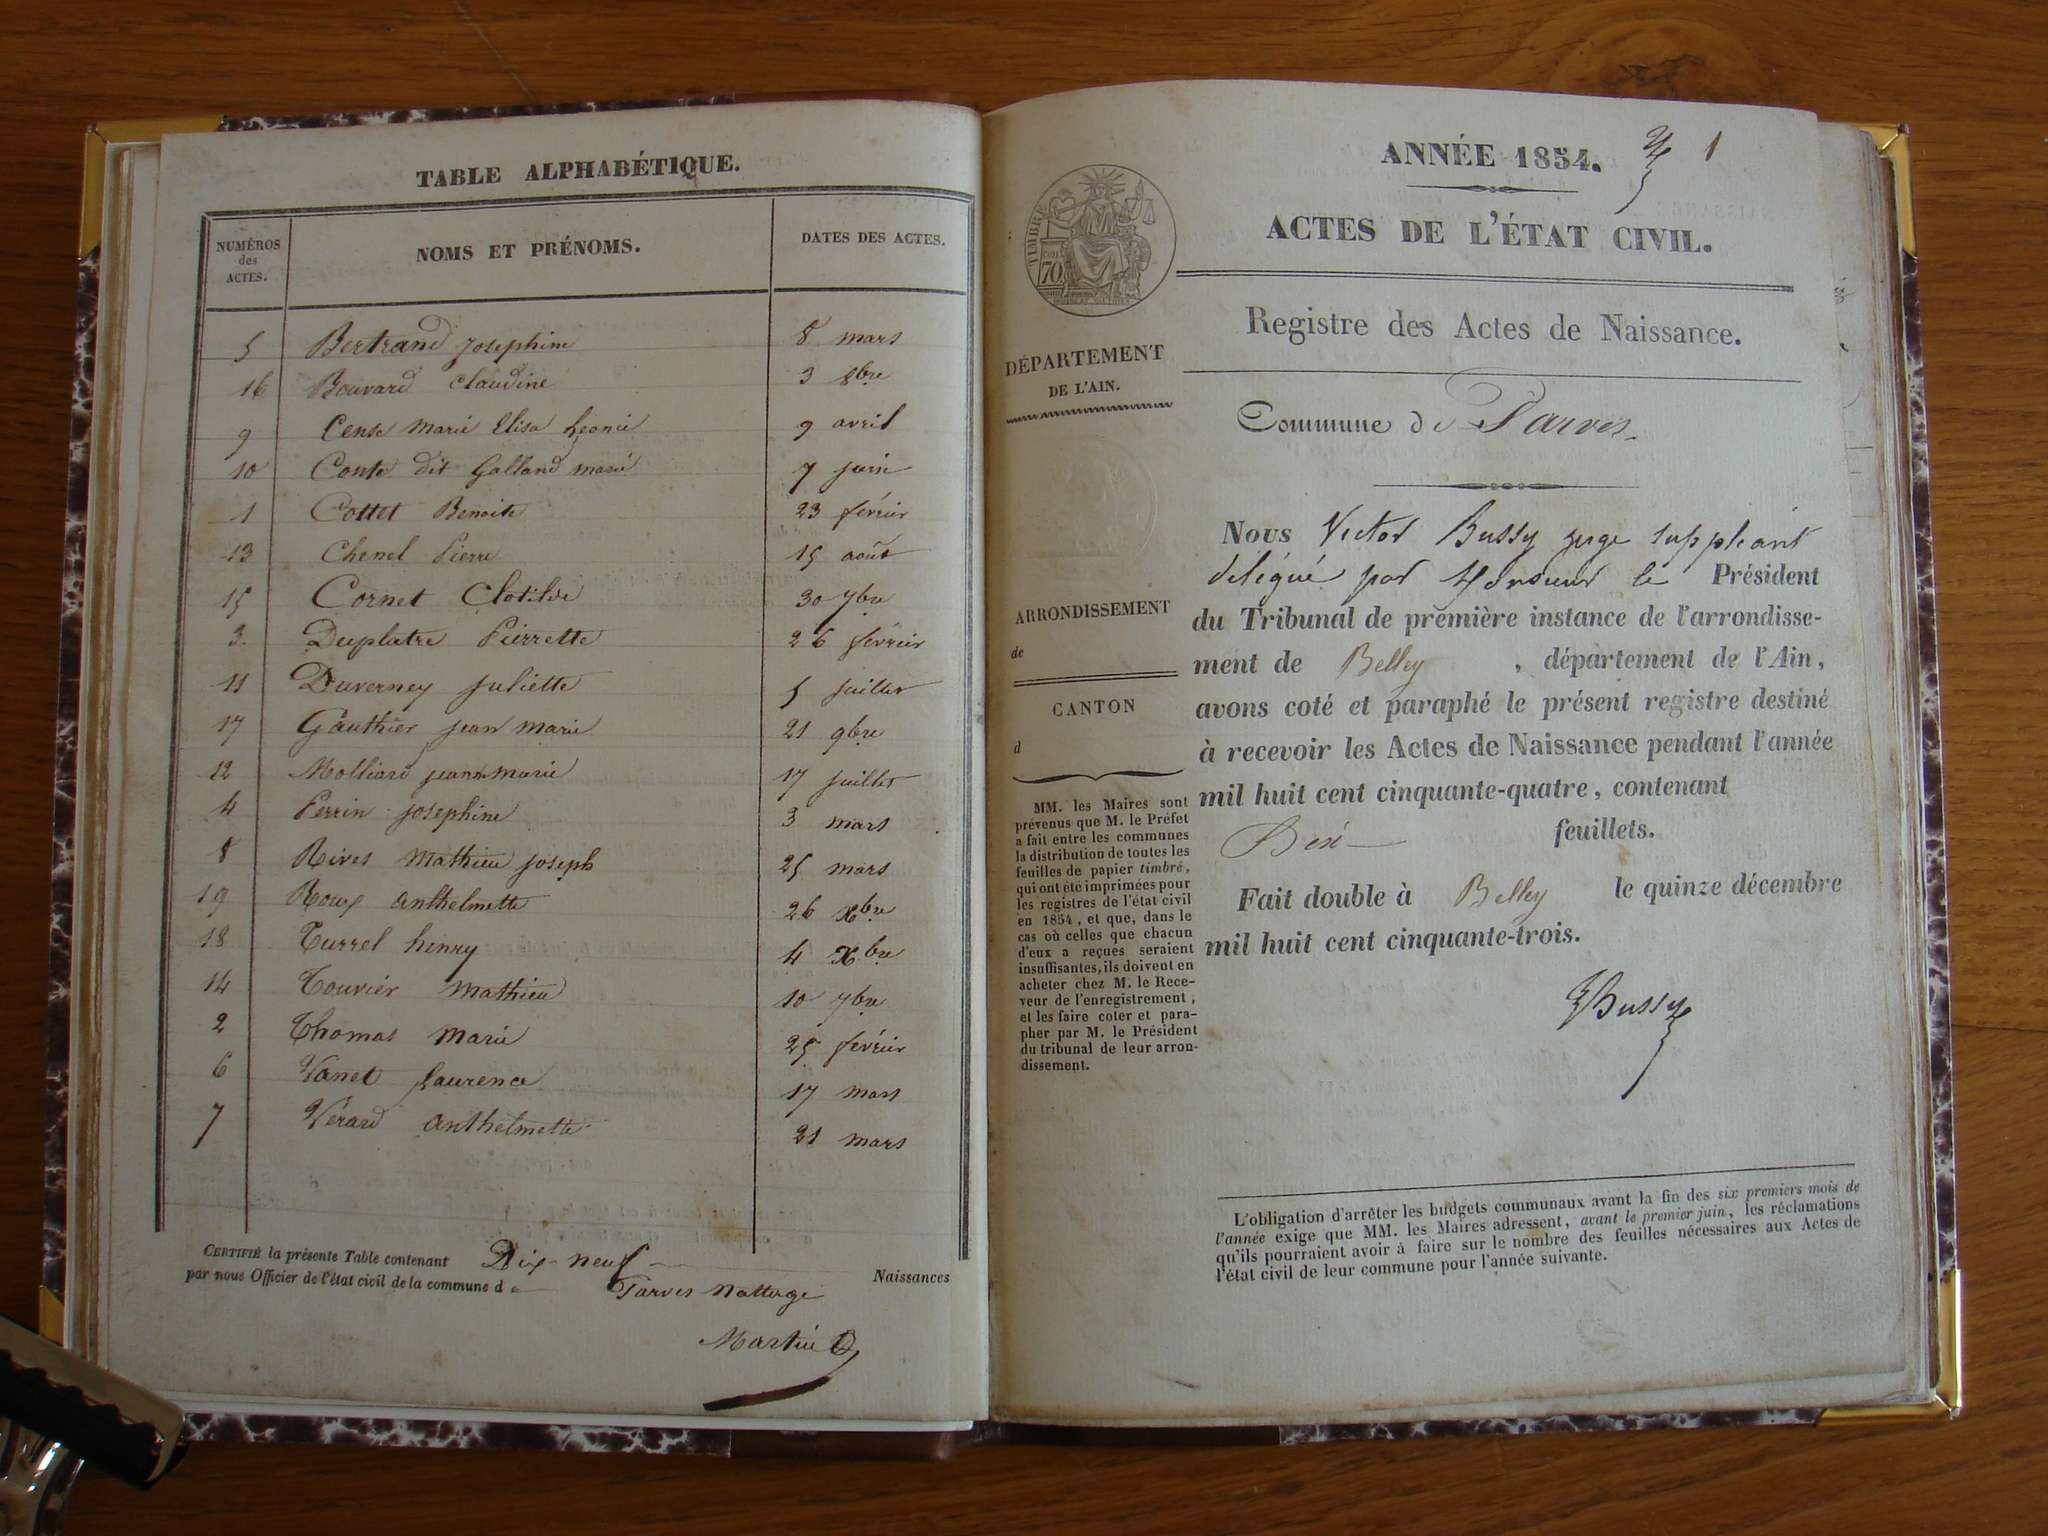 TABLE ALPHABÉTIQUE.
NUMÉROS des ACTES. NOMS ET PRÉNOMS. DATES DES ACTES.
5 Bertrand Josephine 8 mars
16 Bouvard Claudine 3 8bre
9 Cense Marie Elisa Léonie 9 avril
10 Conte dit Galland Marie 7 juin
1 Cottet Benoite 23 février
13 Chenel Pierre 15 août
15 Cornet Clotilde 30 7bre
3 Duplatre Pierrette 26 février
11 Duverney Juliette 5 juillet
17 Gauthier Jean Marie 21 9bre
12 Molliard Jean Marie 17 juillet
4 Perrin Josephine 3 mars
8 Rives Mathieu Joseph 25 mars
19 Roux Anthelmette 26 Xbre
18 Turrel henry 4 Xbre
14 Touvier Mathieu 10 7bre
2 Thomas Marie 25 février
6 Vanet Laurence 17 mars
7 Vérard Anthelmette 21 mars
CERTIFIÉ la présente Table contenant Dix-neuf Naissances
par nous Officier de l'état civil de la commune de Parves Nattage
Martin
ANNÉE 1854. 1
ACTES DE L'ÉTAT CIVIL.
TIMBRE
70
Registre des Actes de Naissance.
DÉPARTEMENT
DE L'AIN.
Commune de Parves
ARRONDISSEMENT
de
CANTON
d
MM. les Maires sont
prévenus que M. le Préfet
a fait entre les communes
la distribution de toutes les
feuilles de papier timbré,
qui ont été imprimées pour
les registres de l'état civil
en 1854, et que, dans le
cas où celles que chacun
d'eux a reçues seraient
insuffisantes, ils doivent en
acheter chez M. le Rece-
veur de l'enregistrement,
et les faire coter et para-
pher par M. le Président
du tribunal de leur arron-
dissement.
Nous Victor Bussy juge suppléant
délégué par Monsieur le Président
du Tribunal de première instance de l'arrondisse-
ment de Belley, département de l'Ain,
avons coté et paraphé le présent registre destiné
à recevoir les Actes de Naissance pendant l'année
mil huit cent cinquante-quatre, contenant
feuillets.
Fait double à Belley le quinze décembre
mil huit cent cinquante-trois.
VBussy
L'obligation d'arrêter les budgets communaux avant la fin des six premiers mois de
l'année exige que MM. les Maires adressent, avant le premier juin, les réclamations
qu'ils pourraient avoir à faire sur le nombre des feuilles nécessaires aux Actes de
l'état civil de leur commune pour l'année suivante.